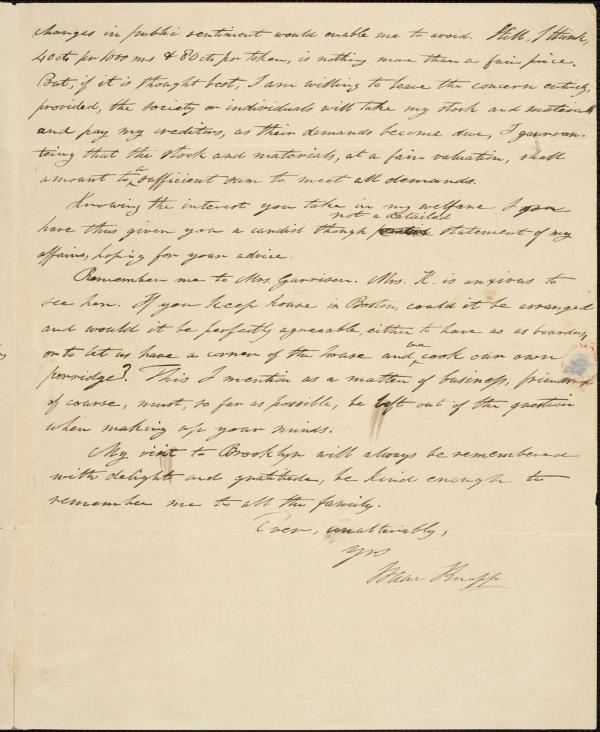 changes in public sentiment would enable me to avoid. Still, I think,
40 cts pr 1000 ms & 80 cts pr token, is nothing more than a fair price.
But, if it is thought best, I am willing to leave the concern entirely,
provided, the society or individuals will take my stock and materials
and pay my creditors, as their demands become due, I guaran-
teeing that the stock and materials, at a fair valuation, shall
amount to a sufficient sum to meet all demands.
Knowing the interest you take in my welfare I
not a detailed
have thus given you a candid though statement of my
affairs, hoping for your advice.
Remember me to Mrs Garrison. Mrs. K. is anxious to
see her. If you keep house in Boston, could it be arranged
and would it be perfectly agreeable, either to have us as boarders,
or to let us have a corner of the house and we cook our own
porridge? This I mention as a matter of business, friendship
of course, must, so far as possible, be left out of the question
when making up your minds.
My visit to Brooklyn will always be remembered
with delight and gratitude, be kind enough to
remember me to all the family.
Ever, unalterably,
Yrs
Isaac Knapp